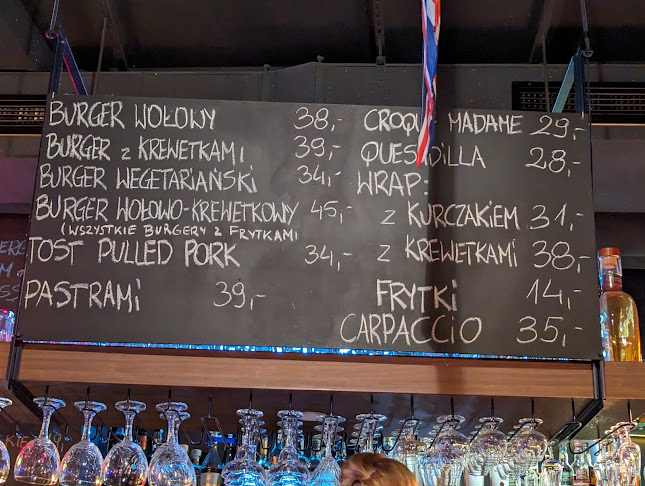 BURGER WOŁOWY 38,-
BURGER z KREWETKAMI 39,-
BURGER WEGETARIAŃSKI 34,-
BURGER WOŁOWO-KREWETKOWY 45,-
(WSZYSTKIE BURGERY Z FRYTKAMI
TOST PULLED PORK 34,-
PASTRAMI 39,-
CROQU MADAME 29,-
QUESADILLA 28,-
WRAP:
z KURCZAKIEM 31,-
z KREWETKAMI 38,-
FRYTKI 14,-
CARPACCIO 35,-